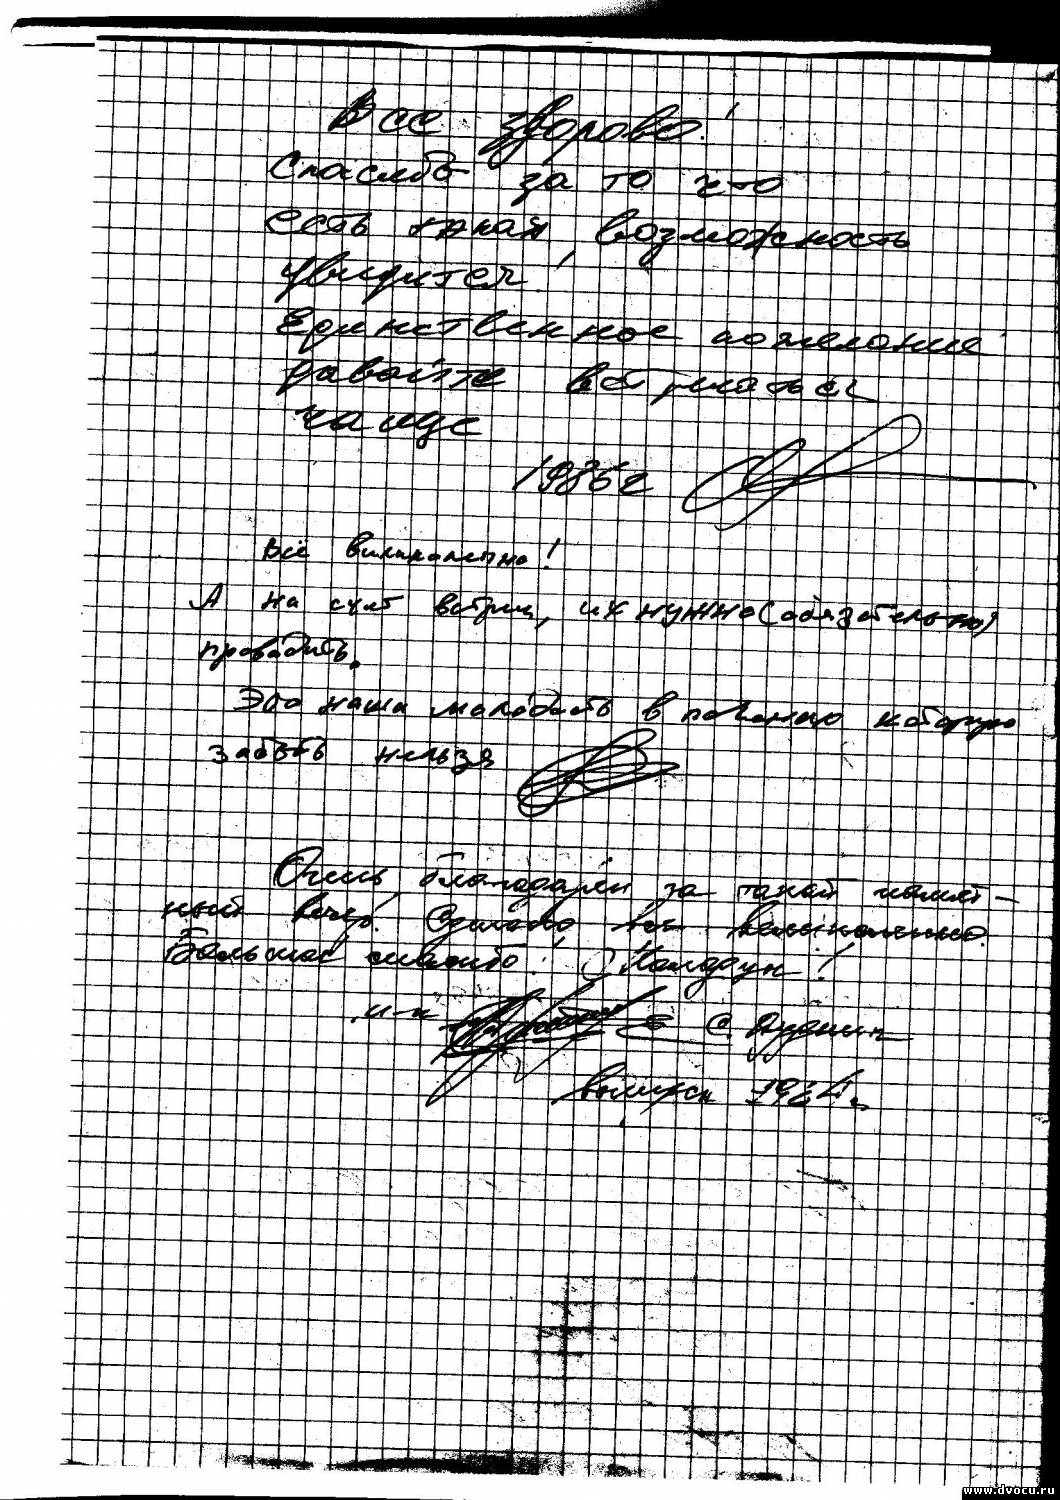 Все здорово!
Спасибо за то что
есть такая возможность
увидится!
Единственное пожелание
давайте встречаться
чаще
1986г
Всё великолепно!
А на счёт встреч, их нужно (обязательно)
проводить.
Это наша молодость в погонах которую
забыть нельзя
Очень благодарен за такой памят-
ный вечер. Сделано все великолепно.
Большое спасибо!
С.
выпуск
www.dvocu.ru